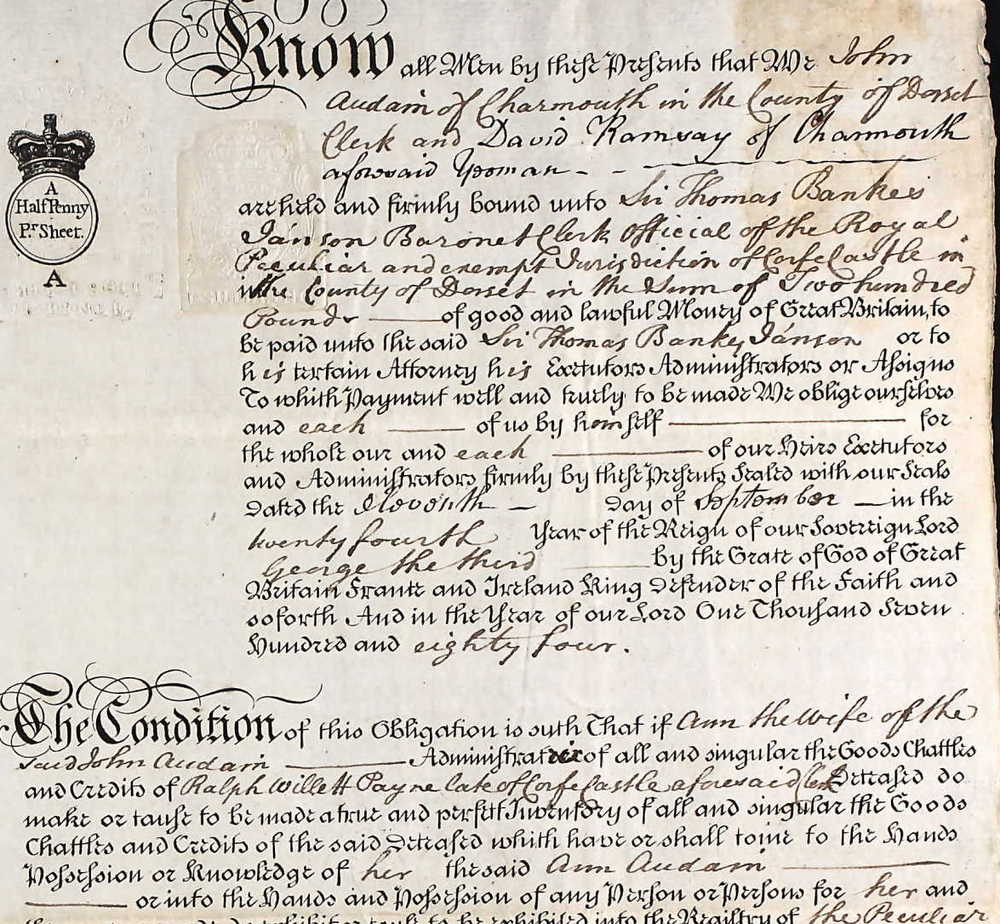 Know all Men by these Presents that We John
Audain of Charmouth in the County of Dorset
Clerk and David Ramsay of Charmouth
aforesaid Yeoman
are held and firmly bound unto Sir Thomas Bankes
Janson Baronet Clerk Official of the Royal
Peculiar and exempt Jurisdiction of Corfe Castle in
the County of Dorset in the Sum of Two hundred
Pounds of good and lawful Money of Great Britain, to
be paid unto the said Sir Thomas Bankes Janson or to
his certain Attorney his Executors Administrators or Assigns
To which Payment well and truely to be made We oblige ourselves
and each of us by himself for
the whole our and each of our Heirs Executors
and Administrators firmly by these Presents Sealed with our Seals
dated the Eleventh day of September in the
twenty fourth Year of the Reign of our Sovereign Lord
George the third by the Grace of God of Great
Britain France and Ireland King Defender of the Faith and
so forth And in the Year of our Lord One Thousand Seven
Hundred and eighty four.
A
Half Penny
Pr. Sheet.
A
The Condition of this Obligation is such That if Ann the Wife of the
said John Audain Administratrix of all and singular the Goods Chattles
and Credits of Ralph Willett Payne late of Corfe Castle aforesaid Deceased do
make or cause to be made a true and perfect Inventory of all and singular the Goods
Chattles and Credits of the said Deceased which have or shall come to the Hands
Possession or Knowledge of her the said Ann Audain
or into the Hands and Possession of any Person or Persons for her and
to be exhibited into the Registry of the Peculiar